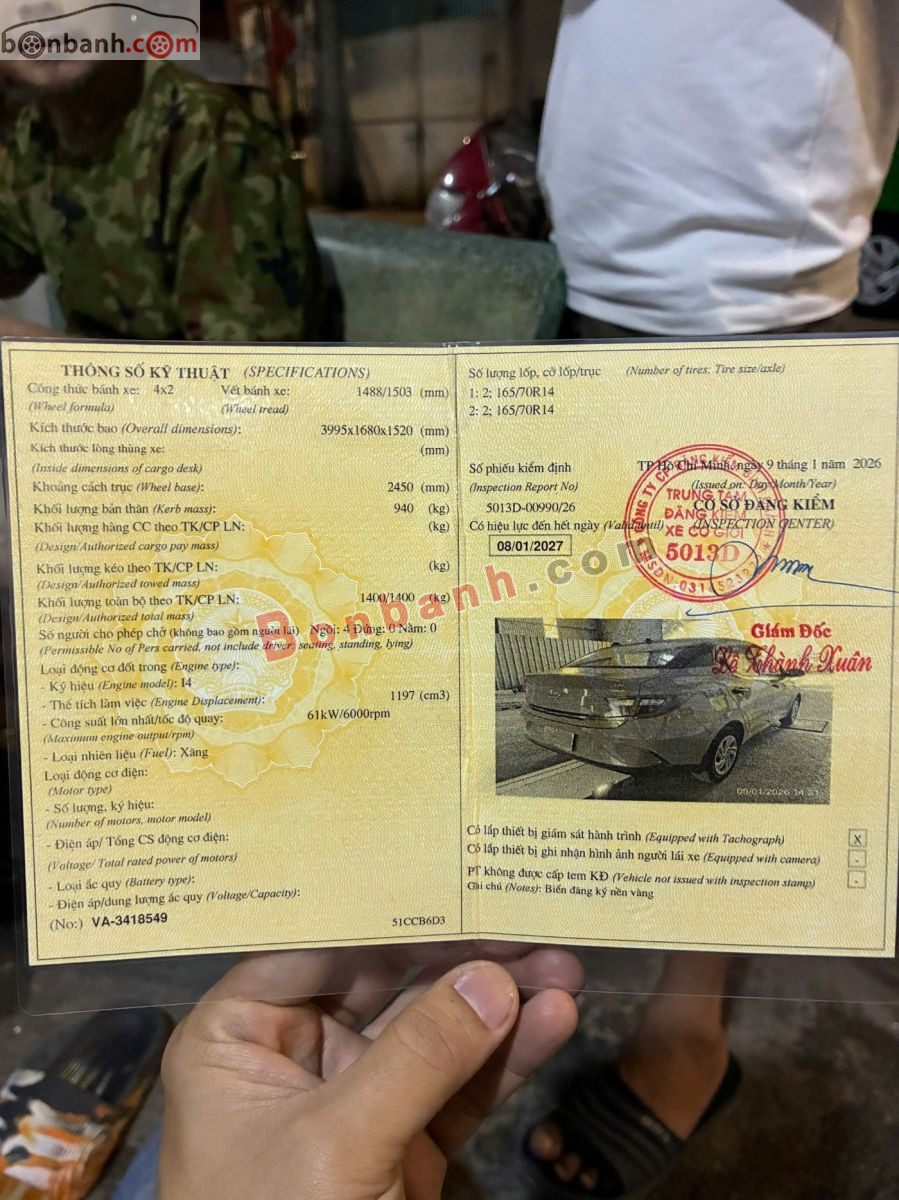 bonbanh.com
THÔNG SỐ KỸ THUẬT (SPECIFICATIONS)
Công thức bánh xe: 4x2 Vết bánh xe: 1488/1503 (mm)
(Wheel formula) (Wheel tread)
Kích thước bao (Overall dimensions): 3995x1680x1520 (mm)
Kích thước lòng thùng xe: (mm)
(Inside dimensions of cargo desk)
Khoảng cách trục (Wheel base): 2450 (mm)
Khối lượng bản thân (Kerb mass): 940 (kg)
Khối lượng hàng CC theo TK/CP LN: (kg)
(Design/Authorized cargo pay mass)
Khối lượng kéo theo TK/CP LN: (kg)
(Design/Authorized towed mass)
Khối lượng toàn bộ theo TK/CP LN: 1400/1400 (kg)
(Design/Authorized total mass)
Số người cho phép chở (không bao gồm người lái) Ngồi: 4 Đứng: 0 Nằm: 0
(Permissible No of Pers carried, not include driver: seating, standing, lying)
Loại động cơ đốt trong (Engine type):
- Ký hiệu (Engine model): I4
- Thể tích làm việc (Engine Displacement): 1197 (cm3)
- Công suất lớn nhất/tốc độ quay: 61kW/6000rpm
(Maximum engine output/rpm)
- Loại nhiên liệu (Fuel): Xăng
Loại động cơ điện:
(Motor type)
- Số lượng, ký hiệu:
(Number of motors, motor model)
- Điện áp/ Tổng CS động cơ điện:
(Voltage/ Total rated power of motors)
- Loại ắc quy (Battery type):
- Điện áp/dung lượng ắc quy (Voltage/Capacity):
(No:) VA-3418549 51CCB6D3
Số lượng lốp, cỡ lốp/trục (Number of tires; Tire size/axle)
1: 2; 165/70R14
2: 2; 165/70R14
Số phiếu kiểm định TP Hồ Chí Minh, ngày 9 tháng 1 năm 2026
(Inspection Report No) (Issued on: Day/Month/Year)
5013D-00990/26 CƠ SỞ ĐĂNG KIỂM
Có hiệu lực đến hết ngày (Valid until) (INSPECTION CENTER)
08/01/2027
TRUNG TÂM
ĐĂNG KIỂM
XE CƠ GIỚI
5013D
Bonbanh.com
Giám Đốc
Lê Thành Xuân
09/01/2026 14:31
Có lắp thiết bị giám sát hành trình (Equipped with Tachograph) X
Có lắp thiết bị ghi nhận hình ảnh người lái xe (Equipped with camera) -
PT không được cấp tem KĐ (Vehicle not issued with inspection stamp) -
Ghi chú (Notes): Biển đăng ký nền vàng